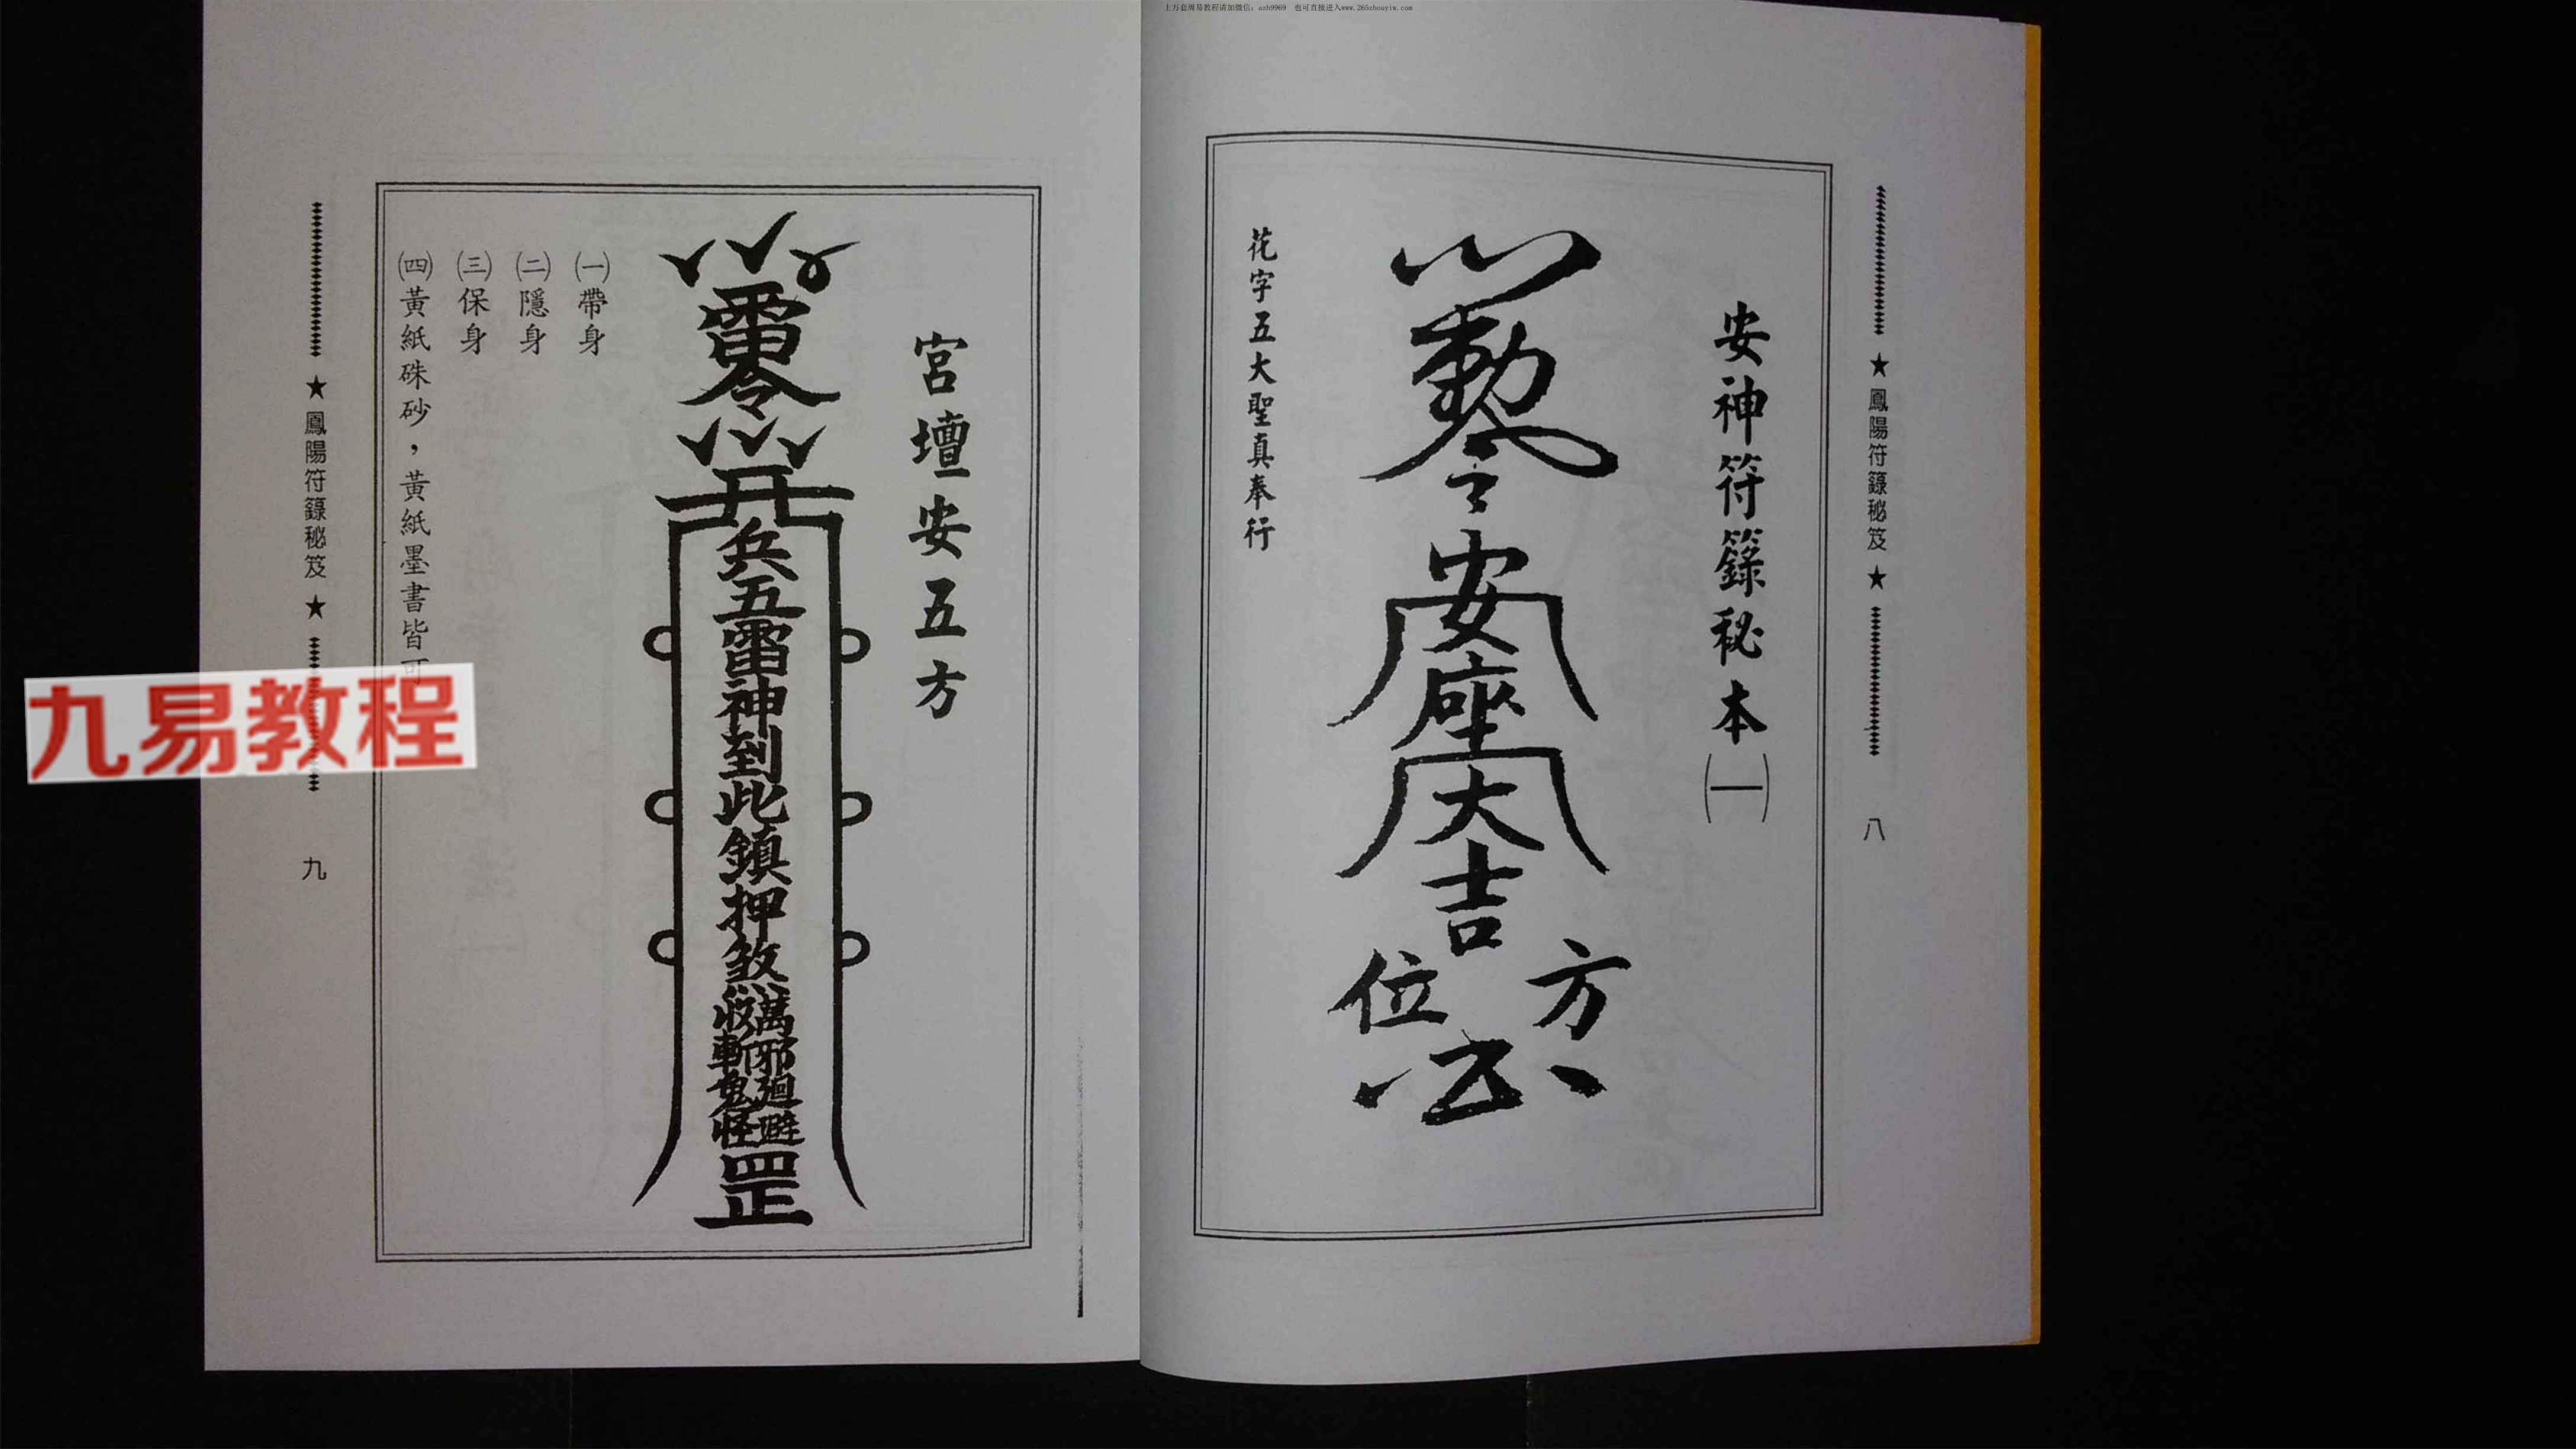 上万套周易教程请加微信：azh9969　也可直接进入www.265zhouyiw.com
★鳳陽符籙秘笈★
八
安神符籙秘本㈠
勅令
安座大吉
方
位
花字五大聖真奉行
宮壇安五方
雷令
兵五雷神到此鎮押煞
萬邪廻避
收斬鬼怪
罡
㈠帶身
㈡隱身
㈢保身
㈣黃紙硃砂，黃紙墨書皆可
★鳳陽符籙秘笈★
九
九易教程